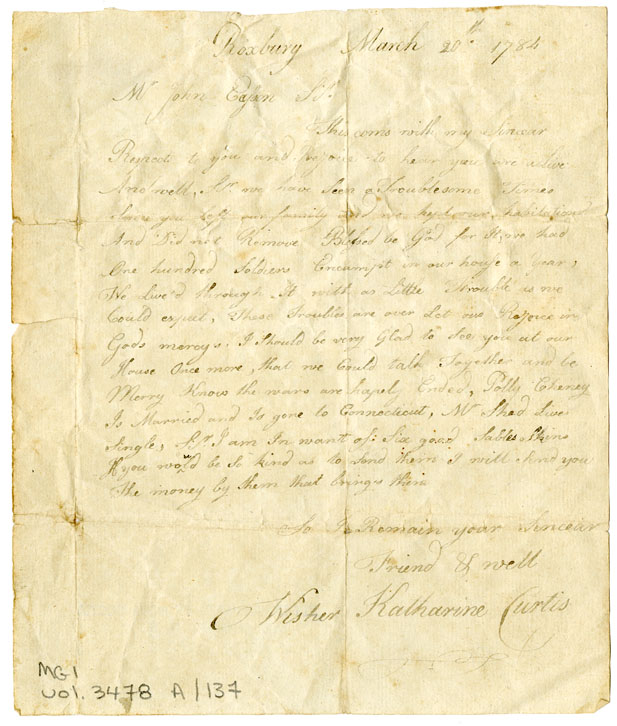 Roxbury March 20th 1784
Mr John Cahn Sr.
This coms with my Sincear
Respect to you and Rejoice to hear you are active
And well, Sr we have Seen Troublesome Times
Since you left our family and we kept our habitation
And Did not Remove Blessed be God for It, we had
One hundred Soldiers Encampt in our house a year,
We Live'd through It with as Little Trouble as we
Could expect, These Troubles are over Let ous Rejoice in
Gods mercys. I Should be very Glad to See you at our
House Once more, that we Could talk Together and be
Merry Know the wars are hapely Ended, Polly Cheney
Is Married and Is gone to Connecticut, Mr Shed Lives
Single, Sr. I am In want of: Six good Sables Skins
If you would be So kind as to Send them I will Send you
The money by them that brings them
So I Remain your Sincear
Friend & well
Wisher Katharine Curtis
MG1
vol. 3478 A/137